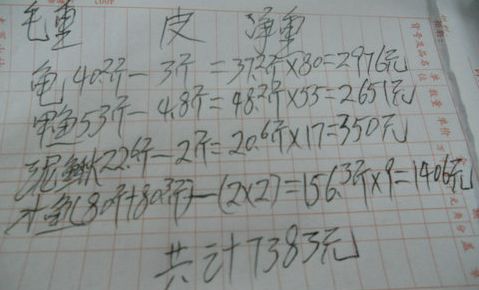 毛重 皮 净重
龟 40.2斤-3斤=37.2斤×80=2976元
甲鱼53斤-4.8斤=48.2斤×55=2651元
泥鳅22.6斤-2斤=20.6斤×17=350元
才鱼(80斤+80.3斤)-(2×2)=156.3斤×9=1406元
共计7383元